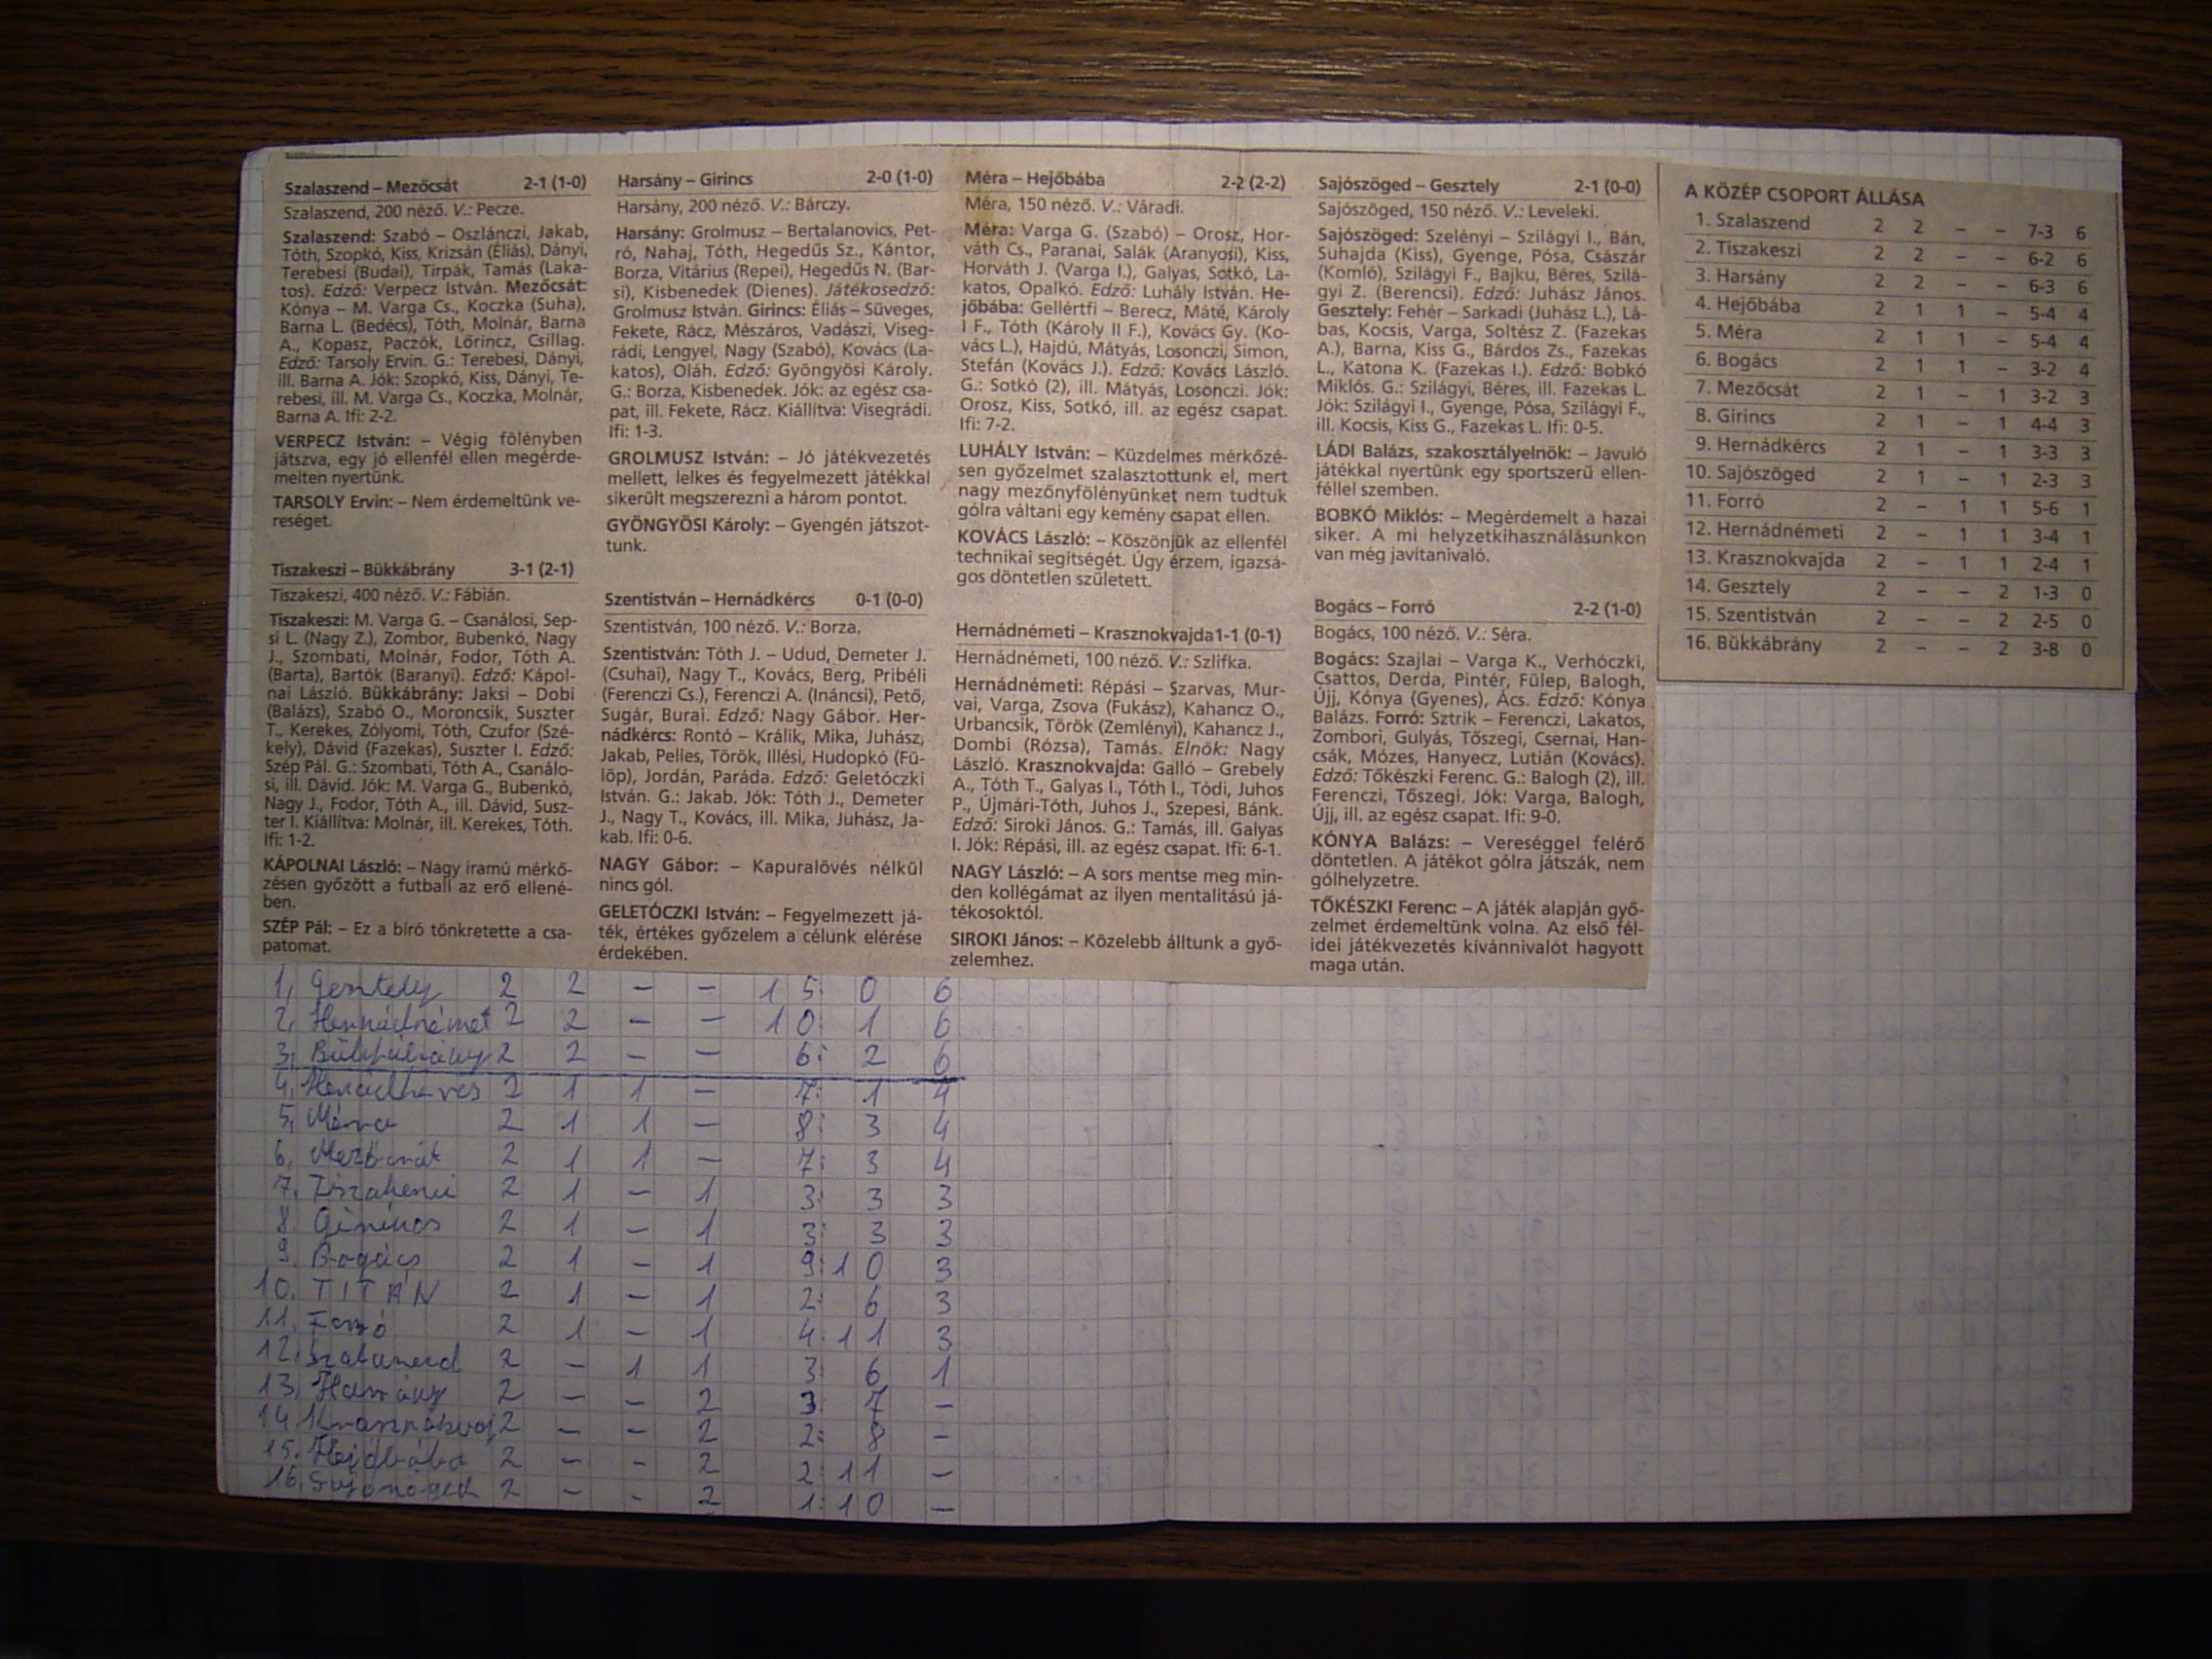 Szalaszend – Mezőcsát 2-1 (1-0)
Szalaszend, 200 néző. V.: Pecze.
Szalaszend: Szabó – Oszlánczi, Jakab,
Tóth, Szopkó, Kiss, Krizsán (Éliás), Dányi,
Terebesi (Budai), Tirpák, Tamás (Laka-
tos). Edző: Verpecz István. Mezőcsát:
Kónya – M. Varga Cs., Koczka (Suha),
Barna L. (Bedécs), Tóth, Molnár, Barna
A., Kopasz, Paczók, Lőrincz, Csillag.
Edző: Tarsoly Ervin. G.: Terebesi, Dányi,
ill. Barna A. Jók: Szopkó, Kiss, Dányi, Te-
rebesi, ill. M. Varga Cs., Koczka, Molnár,
Barna A. Ifi: 2-2.
VERPECZ István: – Végig fölényben
játszva, egy jó ellenfél ellen megérde-
melten nyertünk.
TARSOLY Ervin: – Nem érdemeltünk ve-
reséget.
Tiszakeszi – Bükkábrány 3-1 (2-1)
Tiszakeszi, 400 néző. V.: Fábián.
Tiszakeszi: M. Varga G. – Csanálosi, Sep-
si L. (Nagy Z.), Zombor, Bubenkó, Nagy
J., Szombati, Molnár, Fodor, Tóth A.
(Barta), Bartók (Baranyi). Edző: Kápol-
nai László. Bükkábrány: Jaksi – Dobi
(Balázs), Szabó O., Moroncsik, Suszter
T., Kerekes, Zólyomi, Tóth, Czufor (Szé-
kely), Dávid (Fazekas), Suszter I. Edző:
Szép Pál. G.: Szombati, Tóth A., Csanálo-
si, ill. Dávid. Jók: M. Varga G., Bubenkó,
Nagy J., Fodor, Tóth A., ill. Dávid, Susz-
ter I. Kiállítva: Molnár, ill. Kerekes, Tóth.
Ifi: 1-2.
KÁPOLNAI László: – Nagy iramú mérkő-
zésen győzött a futball az erő ellené-
ben.
SZÉP Pál: – Ez a bíró tönkretette a csa-
patomat.
Harsány – Girincs 2-0 (1-0)
Harsány, 200 néző. V.: Bárczy.
Harsány: Grolmusz – Bertalanovics, Pet-
ró, Nahaj, Tóth, Hegedűs Sz., Kántor,
Borza, Vitárius (Repei), Hegedűs N. (Bar-
si), Kisbenedek (Dienes). Játékosedző:
Grolmusz István. Girincs: Éliás – Süveges,
Fekete, Rácz, Mészáros, Vadászi, Viseg-
rádi, Lengyel, Nagy (Szabó), Kovács (La-
katos), Oláh. Edző: Gyöngyösi Károly.
G.: Borza, Kisbenedek. Jók: az egész csa-
pat, ill. Fekete, Rácz. Kiállítva: Visegrádi.
Ifi: 1-3.
GROLMUSZ István: – Jó játékvezetés
mellett, lelkes és fegyelmezett játékkal
sikerült megszerezni a három pontot.
GYÖNGYÖSI Károly: – Gyengén játszot-
tunk.
Szentistván – Hernádkércs 0-1 (0-0)
Szentistván, 100 néző. V.: Borza.
Szentistván: Tóth J. – Udud, Demeter J.
(Csuhai), Nagy T., Kovács, Berg, Pribéli
(Ferenczi Cs.), Ferenczi A. (Ináncsi), Pető,
Sugár, Burai. Edző: Nagy Gábor. Her-
nádkércs: Rontó – Králik, Mika, Juhász,
Jakab, Pelles, Török, Illési, Hudopkó (Fü-
löp), Jordán, Paráda. Edző: Geletóczki
István. G.: Jakab. Jók: Tóth J., Demeter
J., Nagy T., Kovács, ill. Mika, Juhász, Ja-
kab. Ifi: 0-6.
NAGY Gábor: – Kapuralövés nélkül
nincs gól.
GELETÓCZKI István: – Fegyelmezett já-
ték, értékes győzelem a célunk elérése
érdekében.
Méra – Hejőbába 2-2 (2-2)
Méra, 150 néző. V.: Váradi.
Méra: Varga G. (Szabó) – Orosz, Hor-
váth Cs., Paranai, Salák (Aranyosi), Kiss,
Horváth J. (Varga I.), Galyas, Sotkó, La-
katos, Opalkó. Edző: Luhály István. He-
jőbába: Gellértfi – Berecz, Máté, Károly
I F., Tóth (Károly II F.), Kovács Gy. (Ko-
vács L.), Hajdú, Mátyás, Losonczi, Simon,
Stefán (Kovács J.). Edző: Kovács László.
G.: Sotkó (2), ill. Mátyás, Losonczi. Jók:
Orosz, Kiss, Sotkó, ill. az egész csapat.
Ifi: 7-2.
LUHÁLY István: – Küzdelmes mérkőzé-
sen győzelmet szalasztottunk el, mert
nagy mezőnyfölényünket nem tudtuk
gólra váltani egy kemény csapat ellen.
KOVÁCS László: – Köszönjük az ellenfél
technikai segítségét. Úgy érzem, igazsá-
gos döntetlen született.
Hernádnémeti – Krasznokvajda 1-1 (0-1)
Hernádnémeti, 100 néző. V.: Szlifka.
Hernádnémeti: Répási – Szarvas, Mur-
vai, Varga, Zsova (Fukász), Kahancz O.,
Urbancsik, Török (Zemlényi), Kahancz J.,
Dombi (Rózsa), Tamás. Elnök: Nagy
László. Krasznokvajda: Galló – Grebely
A., Tóth T., Galyas I., Tóth I., Tódi, Juhos
P., Újmári-Tóth, Juhos J., Szepesi, Bánk.
Edző: Siroki János. G.: Tamás, ill. Galyas
I. Jók: Répási, ill. az egész csapat. Ifi: 6-1.
NAGY László: – A sors mentse meg min-
den kollégámat az ilyen mentalitású já-
tékosoktól.
SIROKI János: – Közelebb álltunk a győ-
zelemhez.
Sajószöged – Gesztely 2-1 (0-0)
Sajószöged, 150 néző. V.: Leveleki.
Sajószöged: Szelényi – Szilágyi I., Bán,
Suhajda (Kiss), Gyenge, Pósa, Császár
(Komló), Szilágyi F., Bajku, Béres, Szilá-
gyi Z. (Berencsi). Edző: Juhász János.
Gesztely: Fehér – Sarkadi (Juhász L.), Lá-
bas, Kocsis, Varga, Soltész Z. (Fazekas
A.), Barna, Kiss G., Bárdos Zs., Fazekas
L., Katona K. (Fazekas I.). Edző: Bobkó
Miklós. G.: Szilágyi, Béres, ill. Fazekas L.
Jók: Szilágyi I., Gyenge, Pósa, Szilágyi F.,
ill. Kocsis, Kiss G., Fazekas L. Ifi: 0-5.
LÁDI Balázs, szakosztályelnök: – Javuló
játékkal nyertünk egy sportszerű ellen-
féllel szemben.
BOBKÓ Miklós: – Megérdemelt a hazai
siker. A mi helyzetkihasználásunkon
van még javítanivaló.
Bogács – Forró 2-2 (1-0)
Bogács, 100 néző. V.: Séra.
Bogács: Szajlai – Varga K., Verhóczki,
Csattos, Derda, Pintér, Fülep, Balogh,
Újj, Kónya (Gyenes), Ács. Edző: Kónya
Balázs. Forró: Sztrik – Ferenczi, Lakatos,
Zombori, Gulyás, Tőszegi, Csernai, Han-
csák, Mózes, Hanyecz, Lutián (Kovács).
Edző: Tőkészki Ferenc. G.: Balogh (2), ill.
Ferenczi, Tőszegi. Jók: Varga, Balogh,
Újj, ill. az egész csapat. Ifi: 9-0.
KÓNYA Balázs: – Vereséggel felérő
döntetlen. A játékot gólra játszák, nem
gólhelyzetre.
TŐKÉSZKI Ferenc: – A játék alapján győ-
zelmet érdemeltünk volna. Az első fél-
idei játékvezetés kívánnivalót hagyott
maga után.
A KÖZÉP CSOPORT ÁLLÁSA
1. Szalaszend 2 2 – – 7-3 6
2. Tiszakeszi 2 2 – – 6-2 6
3. Harsány 2 2 – – 6-3 6
4. Hejőbába 2 1 1 – 5-4 4
5. Méra 2 1 1 – 5-4 4
6. Bogács 2 1 1 – 3-2 4
7. Mezőcsát 2 1 – 1 3-2 3
8. Girincs 2 1 – 1 4-4 3
9. Hernádkércs 2 1 – 1 3-3 3
10. Sajószöged 2 1 – 1 2-3 3
11. Forró 2 – 1 1 5-6 1
12. Hernádnémeti 2 – 1 1 3-4 1
13. Krasznokvajda 2 – 1 1 2-4 1
14. Gesztely 2 – – 2 1-3 0
15. Szentistván 2 – – 2 2-5 0
16. Bükkábrány 2 – – 2 3-8 0
1, Gesztely 2 2 – – 15: 0 6
2, Hernádnémet 2 2 – – 10: 1 6
3, Bükkábrány 2 2 – – 6: 2 6
4, Hernádkércs 2 1 1 – 7: 1 4
5, Méra 2 1 1 – 8: 3 4
6, Mezőcsát 2 1 1 – 7: 3 4
7, Tiszakeszi 2 1 – 1 3: 3 3
8. Girincs 2 1 – 1 3: 3 3
9. Bogács 2 1 – 1 9:10 3
10. TITÁN 2 1 – 1 2: 6 3
11. Forró 2 1 – 1 4:11 3
12. Szalaszend 2 – 1 1 3: 6 1
13. Harsány 2 – – 2 3 7 –
14 Krasznokvaj 2 – – 2 2: 8 –
15. Hejőbába 2 – – 2 2:11 –
16. Sajószöged 2 – - 2 1:10 –